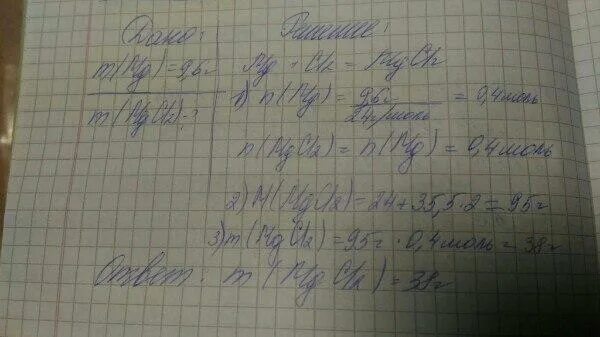 Дано:
m(Mg)=9,6г
m(MgCl2)-?
Решение:
Mg + Cl2 = MgCl2
1) n(Mg) = 9,6г / 24г/моль = 0,4моль
n(MgCl2) = n(Mg) = 0,4моль
2) M(MgCl2) = 24+35,5·2 = 95г
3) m(MgCl2) = 95г · 0,4моль = 38г
Ответ: m(MgCl2) = 38г